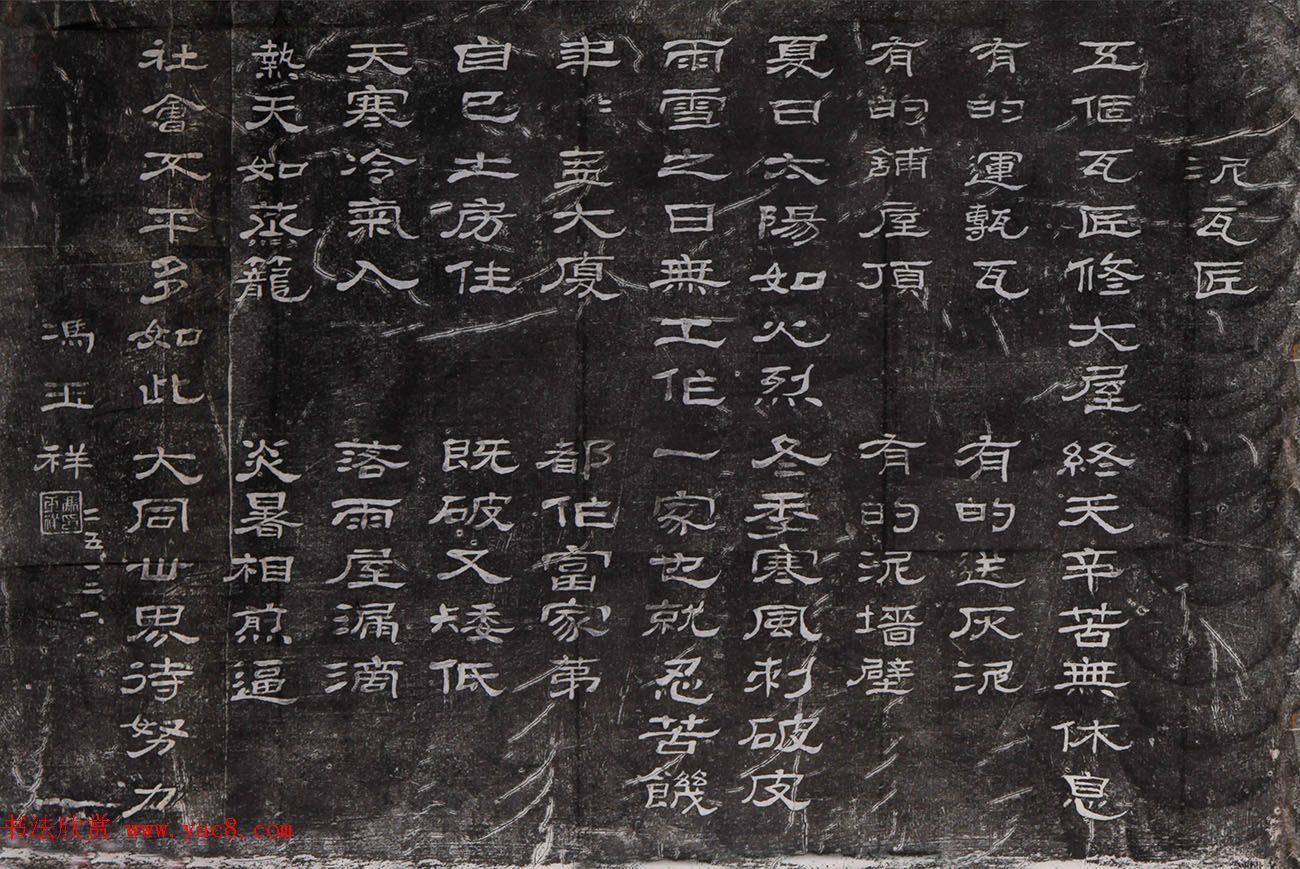 泥瓦匠
五個瓦匠修大屋 終天辛苦無休息
有的運甎瓦 有的送灰泥
有的舖屋頂 有的泥墻壁
夏日太陽如火烈 冬季寒風刺破皮
雨雪之日無工作 一家也就忍苦饑
年〻蓋大廈 都作富家第
自己土房住 既破又矮低
天寒冷氣入 落雨屋漏滴
熱天如蒸籠 炎暑相煎逼
社會不平多如此 大同世界待努力
馮玉祥
二五、一二、一、
书法欣赏 www.yac8.com